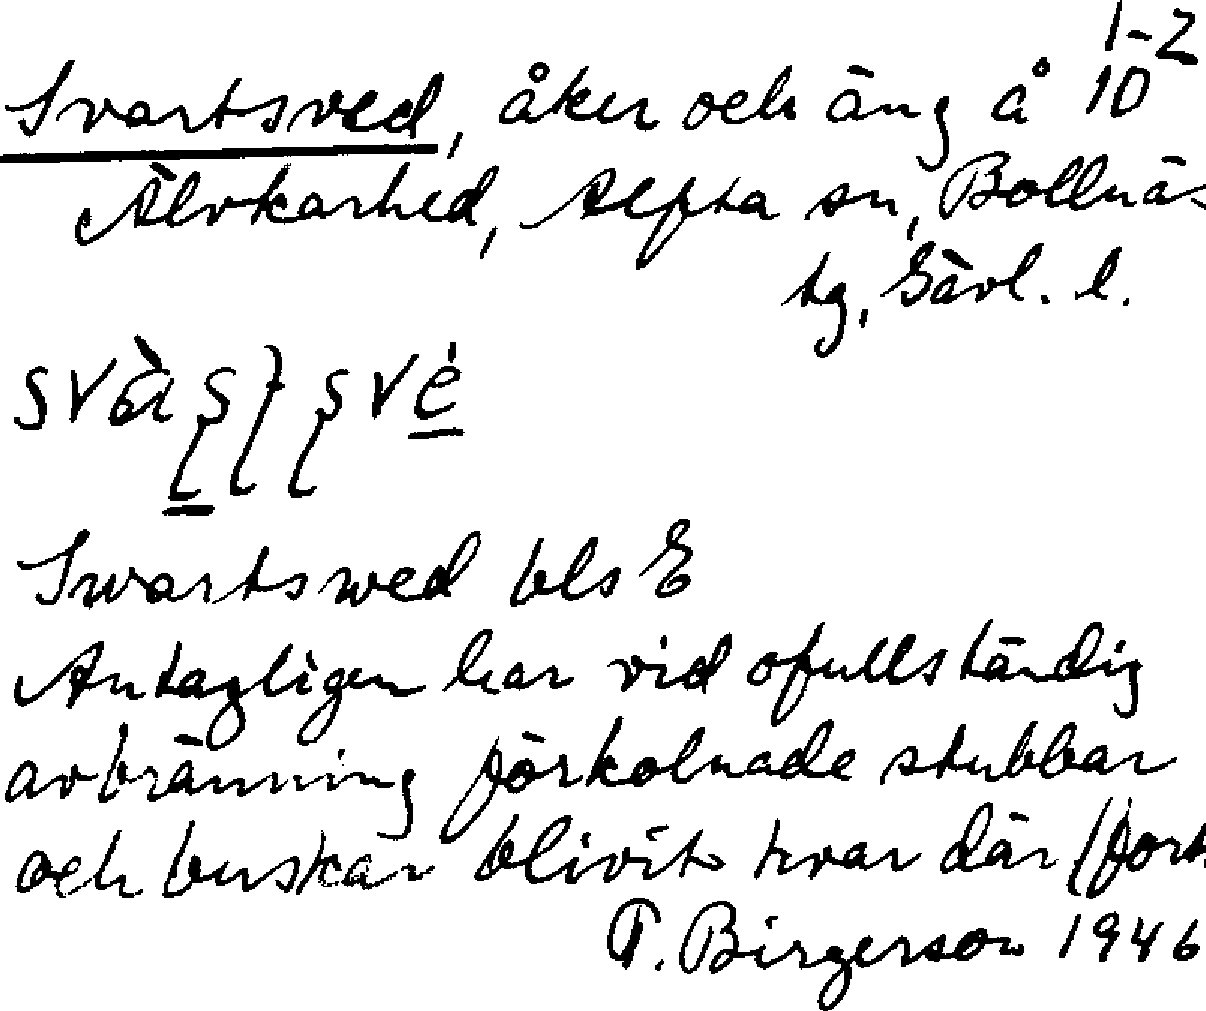 1-2
Svartsved, åker och äng å 10
Älvkarhed, Alfta sn, Bollnäs
tg, Gävl. l.
svàʂʈʂvé
Swartswed bls E
Antagligen har vid ofullständig
avbränning förkolnade stubbar
och buskar blivit kvar där (fort
T. Birgerson 1946